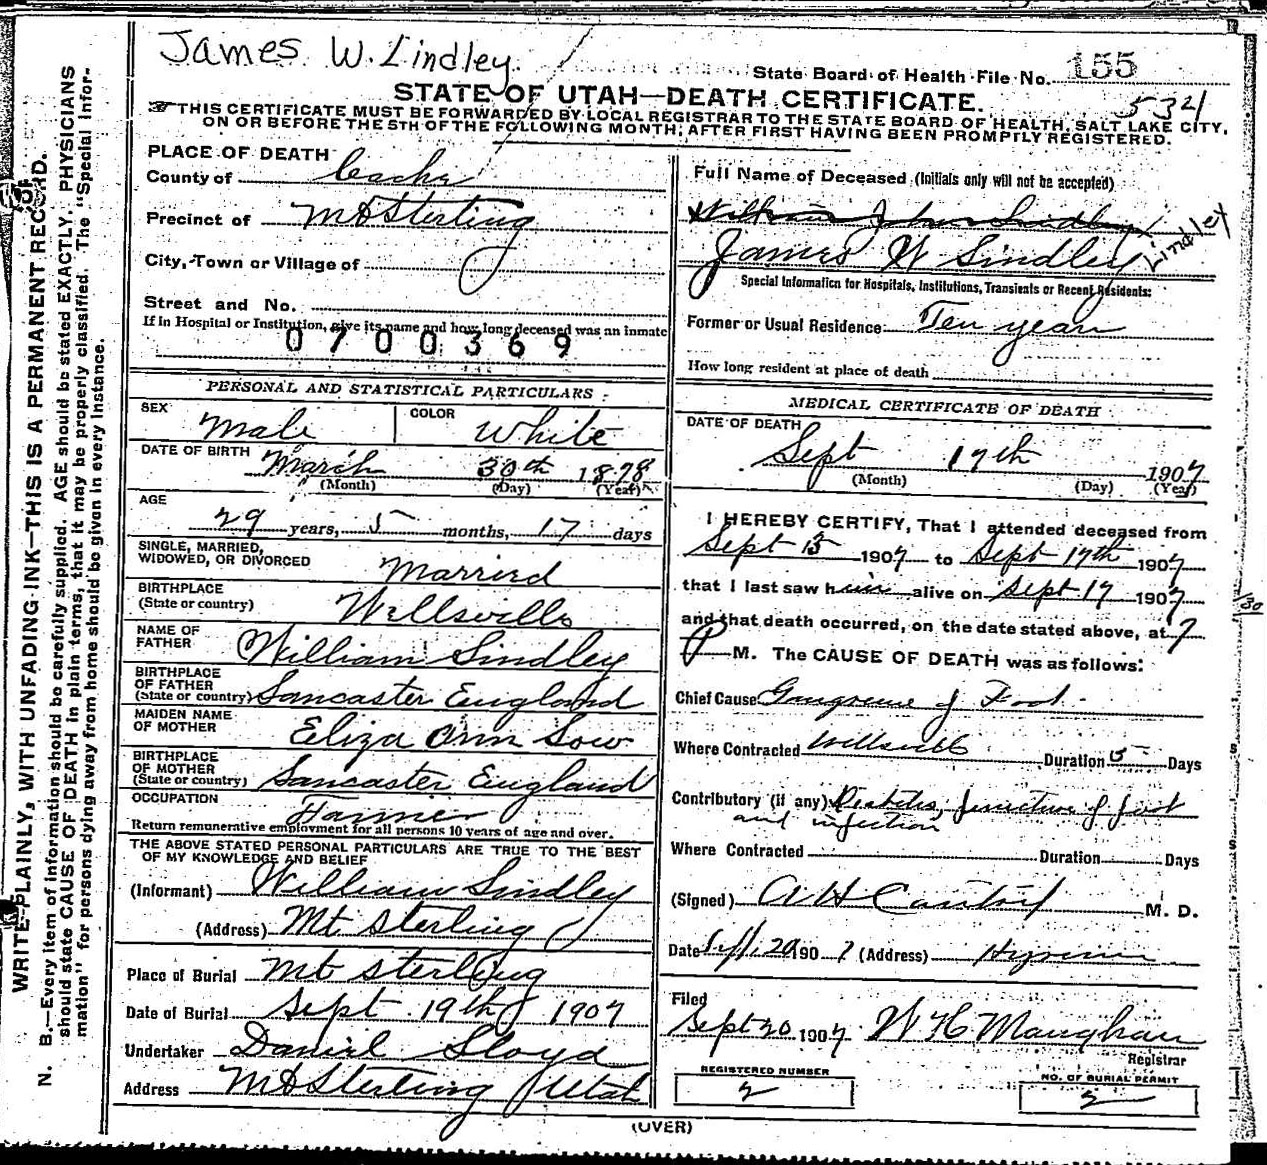 James W. Lindley
State Board of Health File No. 155
STATE OF UTAH—DEATH CERTIFICATE.
534
THIS CERTIFICATE MUST BE FORWARDED BY LOCAL REGISTRAR TO THE STATE BOARD OF HEALTH, SALT LAKE CITY,
ON OR BEFORE THE 5TH OF THE FOLLOWING MONTH, AFTER FIRST HAVING BEEN PROMPTLY REGISTERED.
WRITE PLAINLY, WITH UNFADING INK—THIS IS A PERMANENT RECORD.
N. B.—Every item of information should be carefully supplied. AGE should be stated EXACTLY. PHYSICIANS
should state CAUSE OF DEATH in plain terms, that it may be properly classified. The "Special Infor-
mation" for persons dying away from home should be given in every instance.
PLACE OF DEATH
County of Cache
Precinct of Mt Sterling
City, Town or Village of
Street and No.
If in Hospital or Institution, give its name and how long deceased was an inmate
0700369
PERSONAL AND STATISTICAL PARTICULARS
SEX Male COLOR White
DATE OF BIRTH March 30th 1878
(Month) (Day) (Year)
AGE
29 years, 5 months, 17 days
SINGLE, MARRIED,
WIDOWED, OR DIVORCED Married
BIRTHPLACE
(State or country) Wellsville
NAME OF
FATHER William Lindley
BIRTHPLACE
OF FATHER
(State or country) Lancaster England
MAIDEN NAME
OF MOTHER Eliza Ann Low
BIRTHPLACE
OF MOTHER
(State or country) Lancaster England
OCCUPATION Farmer
Return remunerative employment for all persons 10 years of age and over.
THE ABOVE STATED PERSONAL PARTICULARS ARE TRUE TO THE BEST
OF MY KNOWLEDGE AND BELIEF
(Informant) William Lindley
(Address) Mt Sterling
Place of Burial Mt Sterling
Date of Burial Sept 19th 1907
Undertaker Daniel Lloyd
Address Mt Sterling Utah
Full Name of Deceased (Initials only will not be accepted)
William John Lindley
James W Lindley
Special Information for Hospitals, Institutions, Transients or Recent Residents:
Former or Usual Residence Ten years
How long resident at place of death
MEDICAL CERTIFICATE OF DEATH
DATE OF DEATH
Sept 17th 1907
(Month) (Day) (Year)
I HEREBY CERTIFY, That I attended deceased from
Sept 13 1907 to Sept 17th 1907
that I last saw him alive on Sept 17 1907
and that death occurred, on the date stated above, at 7
P M. The CAUSE OF DEATH was as follows:
Chief Cause Gangrene of Foot
Where Contracted Wellsville Duration 5 Days
Contributory (if any) Diabetes, puncture of foot
and infection
Where Contracted Duration Days
(Signed) M. D.
Date Sept 20 1907 (Address) Hyrum
Filed
Sept 20 1907 W H Maughan
Registrar
REGISTERED NUMBER
2
NO. OF BURIAL PERMIT
2
(OVER)